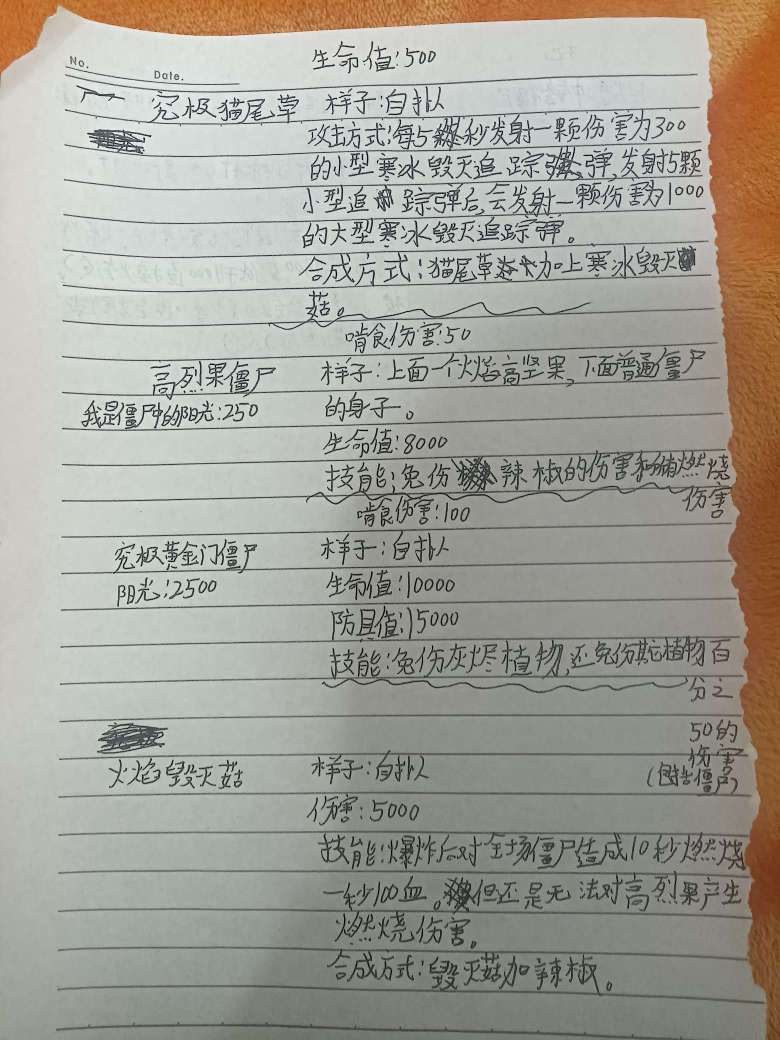 生命值:500
No.
Date.
究极猫尾草 样子:自扑人
攻击方式:每5秒发射一颗伤害为300
的小型寒冰毁灭追踪弹,发射5颗
小型追踪弹后,会发射一颗伤害为1000
的大型寒冰毁灭追踪弹。
合成方式:猫尾草加上寒冰毁灭
菇。
啃食伤害:50
高烈果僵尸 样子:上面一个火焰高坚果,下面普通僵尸
我是僵尸中的阳光:250 的身子。
生命值:8000
技能:免伤辣椒的伤害和所有燃烧
伤害
啃食伤害:100
究极黄金门僵尸 样子:自扑人
阳光:2500 生命值:10000
防具值:15000
技能:免伤灰烬植物,还免伤其它植物百
分之
50的
伤害
(包括僵尸)
火焰毁灭菇 样子:自扑人
伤害:5000
技能:爆炸后对全场僵尸造成10秒燃烧
一秒100血。但还是无法对高烈果产生
燃烧伤害。
合成方式:毁灭菇加辣椒。